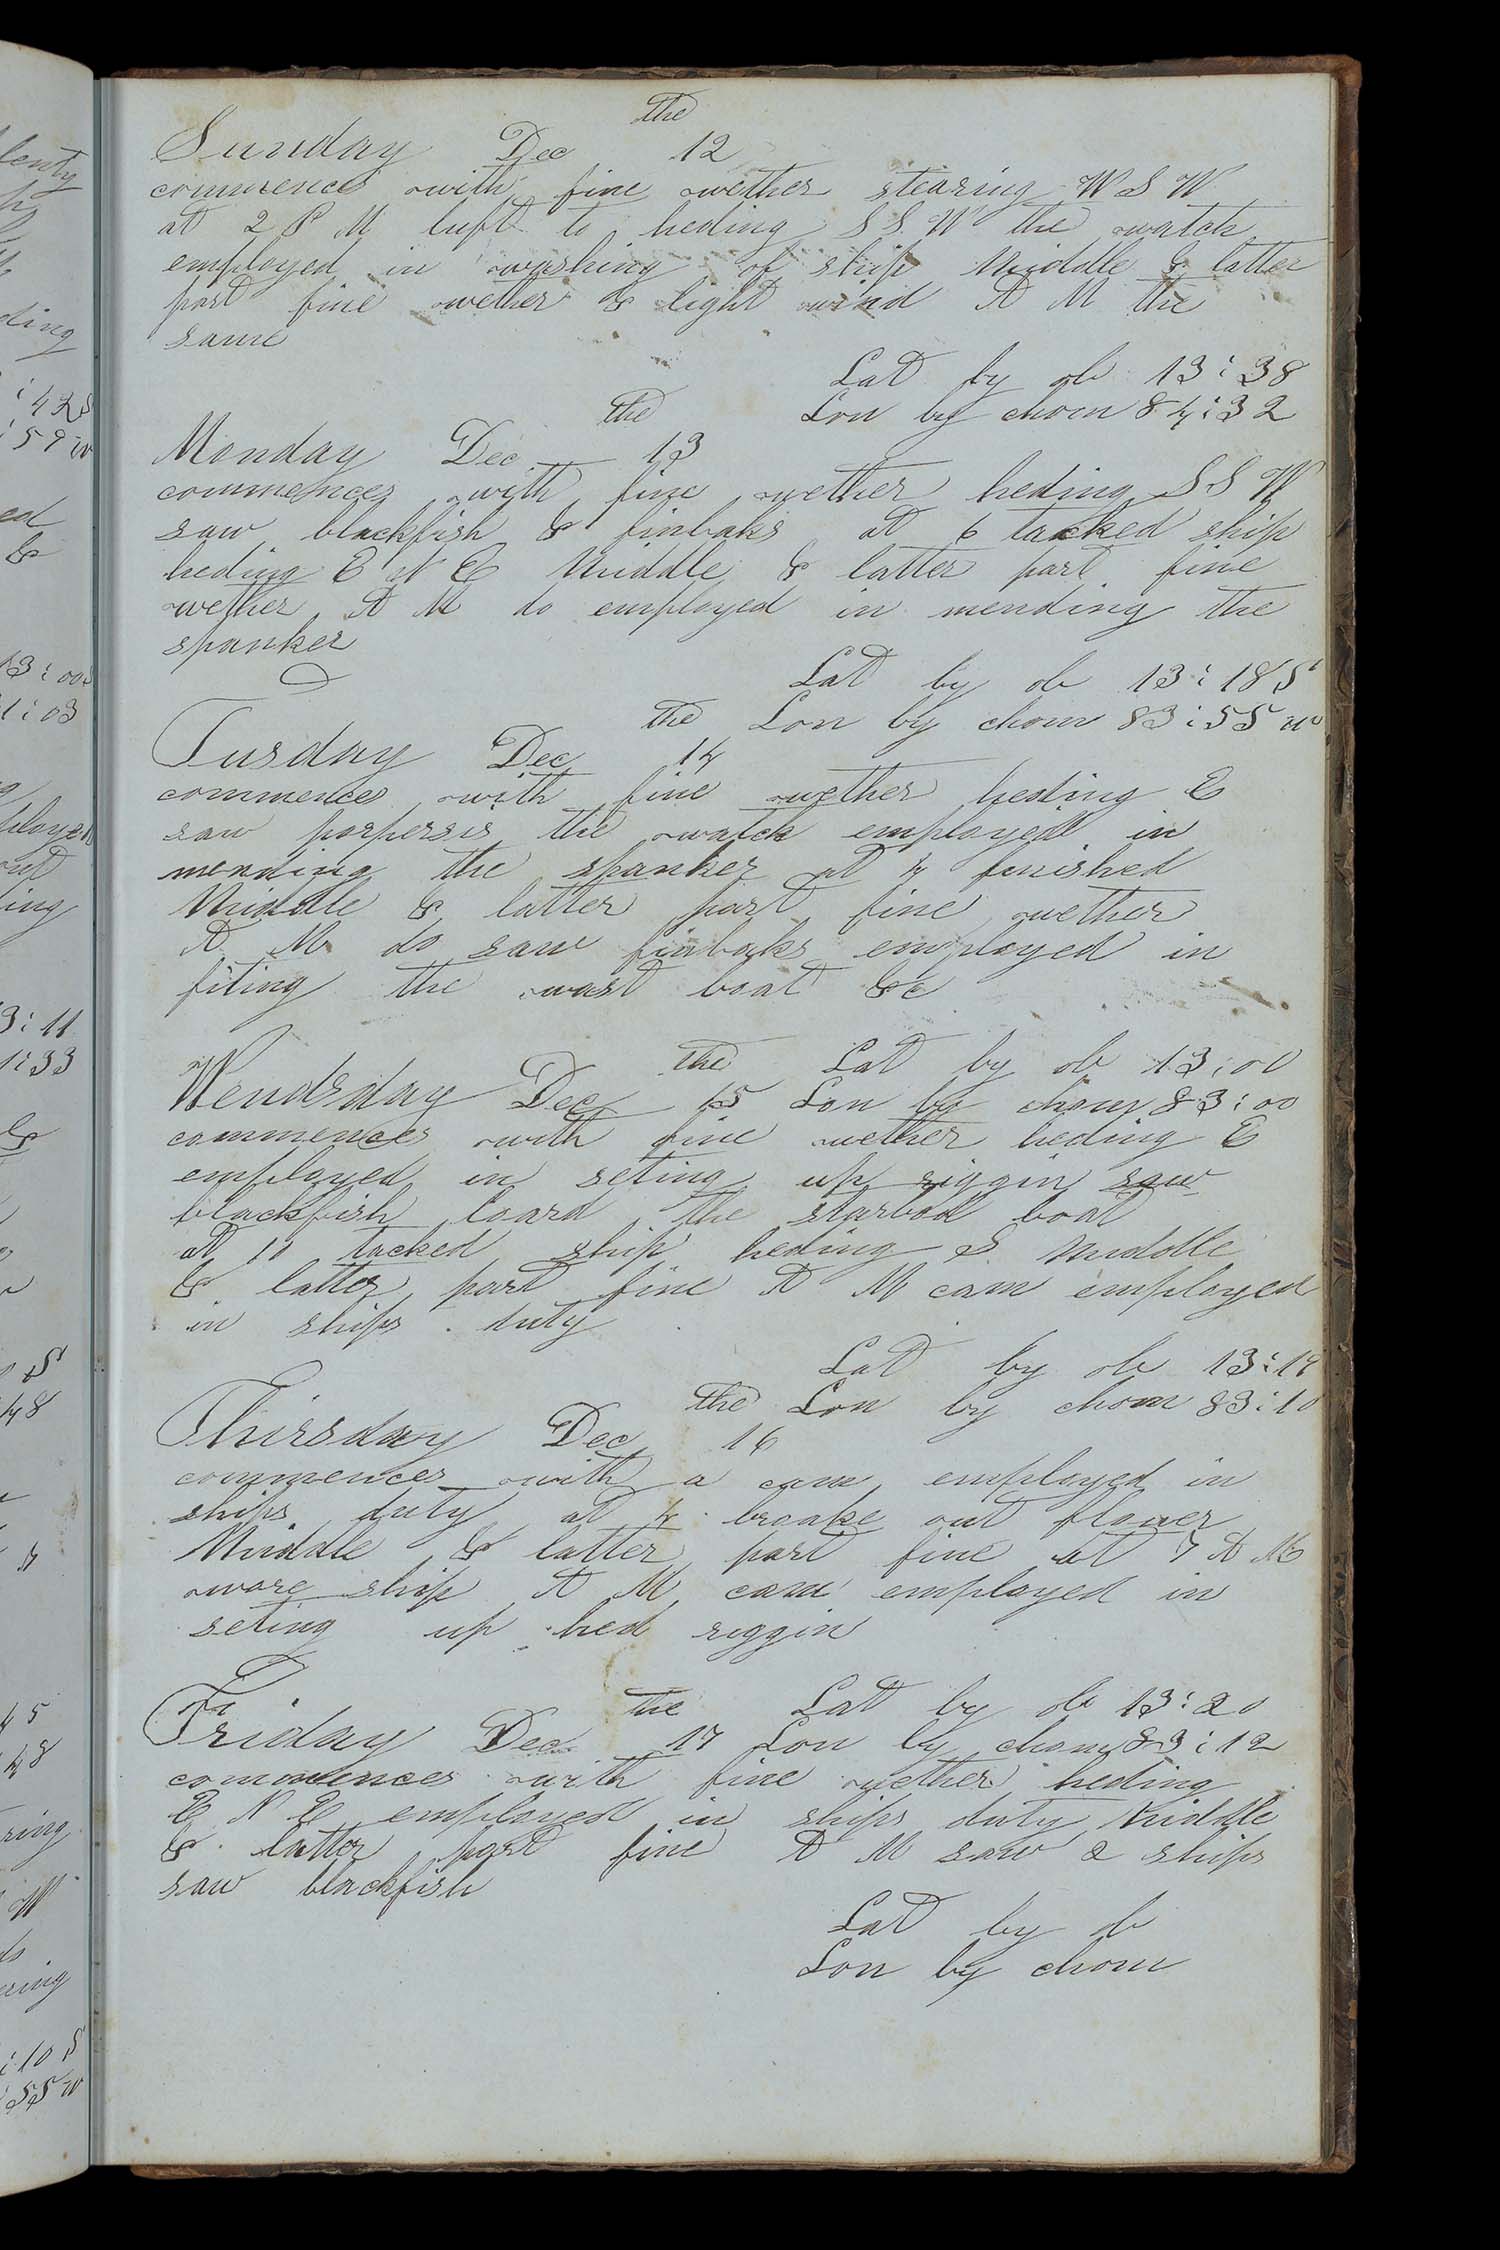 Sunday Dec the 12
commences with fine wether stearing W S W
at 2 P M luft to heding S S W the watch
employed in washing of ship Middle & latter
part fine wether & light wind A M the
same
Lat by ob 13 : 38
Lon by chom 84 : 32
Monday Dec the 13
commences with fine wether heding S S W
saw blackfish & finbaks at 6 tacked ship
heding E N E Middle & latter part fine
wether A M do employed in mending the
spanker
Lat by ob 13 : 18 S
Lon by chom 83 : 55 w
Tusday Dec the 14
commences with fine wether heding E
saw porpersis the watch employed in
mending the spanker at 4 finished
Middle & latter part fine wether
A M do saw finbaks employed in
fiting the wast boat &c
Lat by ob 13 : 00
Wendsday Dec the 15 Lon by chom 83 : 00
commences with fine wether heding E
employed in seting up riggin saw
blackfish loard the starbord boat
At 10 tacked ship heding S Middle
& latter part fine A M cam employed
in ships duty
Lat by ob 13 : 19
Lon by chom 83 : 10
Thirsday Dec the 16
commences with a cam employed in
ships duty at 4 broake out flouer
Middle & latter part fine at 7 A M
wore ship A M cam employed in
seting up hed riggin
Lat by ob 13 : 20
Friday Dec the 17 Lon by chom 83 : 12
commences with fine wether heding
E N E employed in ships duty Middle
& latter part fine A M saw 2 ships
saw blackfish
Lat by ob
Lon by chom